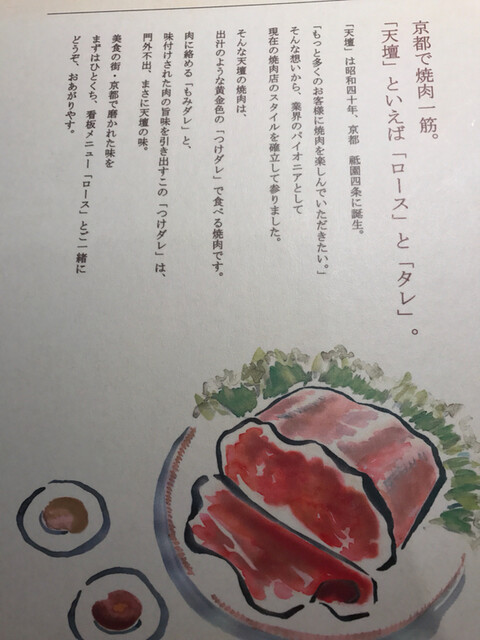 京都で焼肉一筋。
「天壇」といえば「ロース」と「タレ」。
「天壇」は昭和四十年、京都 祇園四条に誕生。
「もっと多くのお客様に焼肉を楽しんでいただきたい。」
そんな想いから、業界のパイオニアとして
現在の焼肉店のスタイルを確立して参りました。
そんな天壇の焼肉は、
出汁のような黄金色の「つけダレ」で食べる焼肉です。
肉に絡める「もみダレ」と、
味付けされた肉の旨味を引き出すこの「つけダレ」は、
門外不出、まさに天壇の味。
美食の街・京都で磨かれた味を
まずはひとくち、看板メニュー「ロース」とご一緒に
どうぞ、おあがりやす。